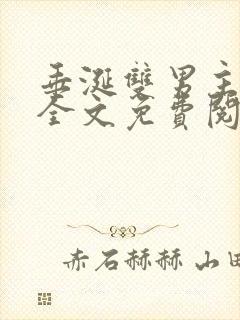 垂涎雙男主
全文免費閱
赤石赫赫 山田